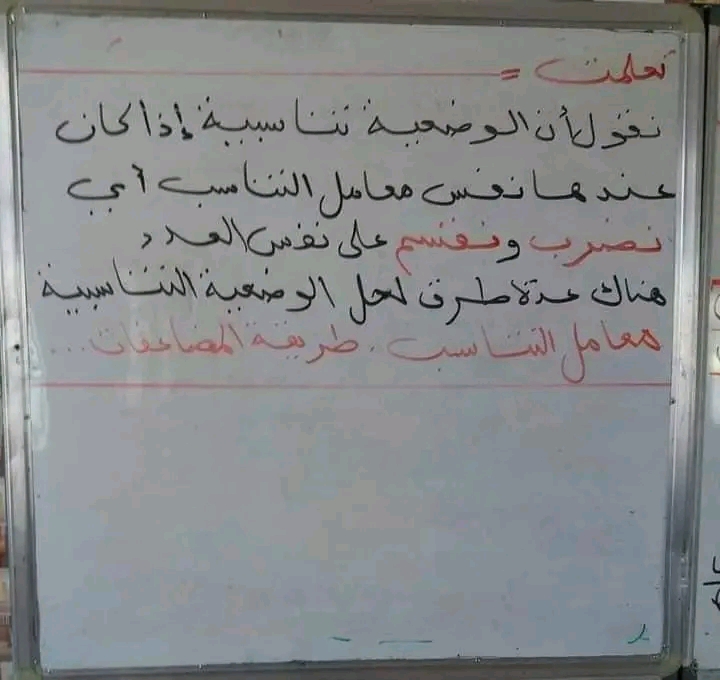 تعلمت =
نقول أن الوضعية تناسبية إذا كان
عندها نفس معامل التناسب أي
نضرب ونقسم على نفس العدد
هناك عدة طرق لحل الوضعية التناسبية
معامل التناسب . طريقة المضاعفات...